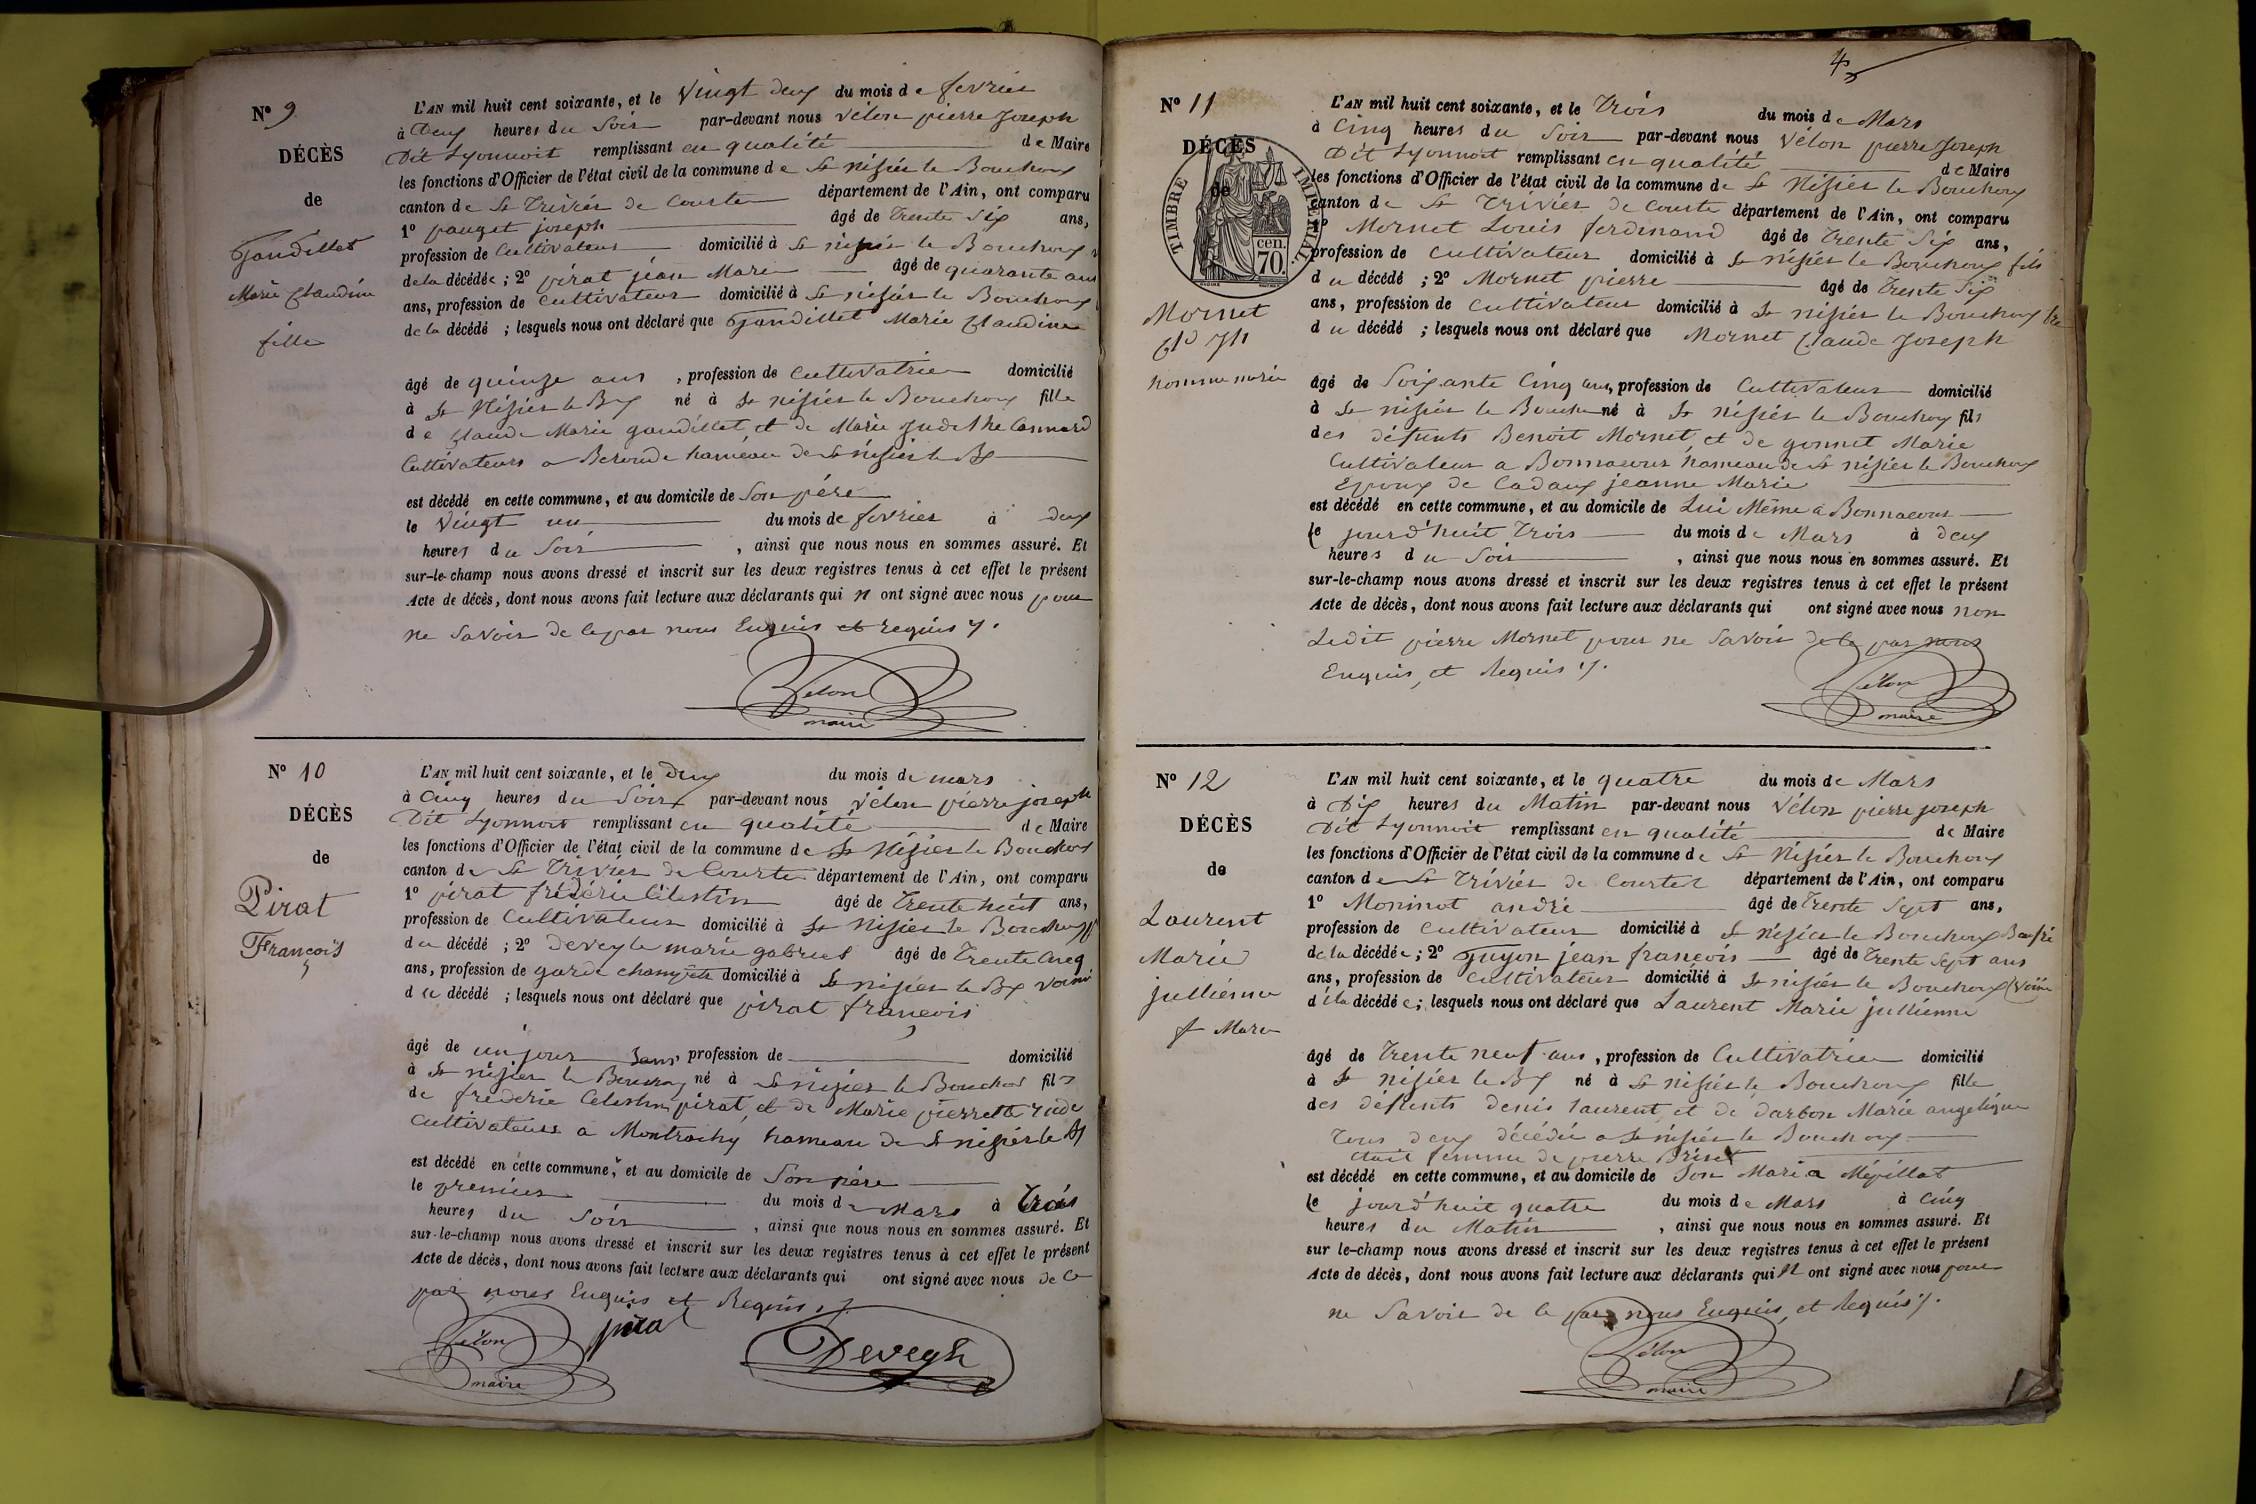 N° 9
DÉCÈS
de
Gandillet
Marie Claudine
fille
L'AN mil huit cent soixante, et le Vingt deux du mois de fevrier
à Deux heures du Soir par-devant nous Vélon pierre Joseph
Dit Lyonnoit remplissant en qualité de Maire
les fonctions d'Officier de l'état civil de la commune de St Nisier le Bouchoux
canton de St Trivier de Courte département de l'Ain, ont comparu
1° pauget joseph âgé de Trente Six ans,
profession de Cultivateur domicilié à St nisier le Bouchoux
de la décédée ; 2° pirat jean Marie âgé de quarante ans
ans, profession de Cultivateur domicilié à St nisier le Bouchoux
de la décédé ; lesquels nous ont déclaré que Gandillet Marie Claudine
âgé de quinze ans , profession de Cultivatrice domicilié
à St Nisier le Bx né à St nisier le Bouchoux fille
de Claude Marie gandillet, et de Marie Judithe Connard
Cultivateurs a Beroude hameau de St nisier le Bx
est décédé en cette commune, et au domicile de Son père
le Vingt un du mois de fevrier à deux
heures du Soir , ainsi que nous nous en sommes assuré. Et
sur-le-champ nous avons dressé et inscrit sur les deux registres tenus à cet effet le présent
Acte de décès, dont nous avons fait lecture aux déclarants qui n ont signé avec nous pour
ne Savoir de le par nous Enquis et requis /.
Vélon
maire
N° 10
DÉCÈS
de
Pirat
François
L'AN mil huit cent soixante, et le deux du mois de mars
à Cinq heures du Soir par-devant nous Vélon pierre joseph
Dit Lyonnoit remplissant en qualité de Maire
les fonctions d'Officier de l'état civil de la commune de St Nisier le Bouchoux
canton de St Trivier de Courte département de l'Ain, ont comparu
1° pirat frédéric Célestin âgé de Trente huit ans,
profession de Cultivateur domicilié à St Nisier le Bouchoux
du décédé ; 2° deveyle marie gabriel âgé de Trente Cinq
ans, profession de garde champête domicilié à St nisier le Bx voisin
du décédé ; lesquels nous ont déclaré que pirat françois
âgé de un jour Sans, profession de domicilié
à St nisier le Bouchoux né à St nisier le Bouchoux fils
de frederic Celestin pirat, et de Marie pierrette rude
Cultivateurs a Montrachy hameau de St nisier le Bx
est décédé en cette commune, et au domicile de Son père
le premier du mois de Mars à Trois
heures du Soir , ainsi que nous nous en sommes assuré. Et
sur-le-champ nous avons dressé et inscrit sur les deux registres tenus à cet effet le présent
Acte de décès, dont nous avons fait lecture aux déclarants qui ont signé avec nous de le
par nous Enquis et Requis /.
Vélon
maire
pirat
N° 11
DÉCÈS
de
TIMBRE IMPÉRIAL
70 cen.
Mornet
Cld Jh
homme marié
L'AN mil huit cent soixante, et le Trois du mois de Mars
à Cinq heures du Soir par-devant nous Vélon pierre Joseph
Dit Lyonnoit remplissant en qualité de Maire
les fonctions d'Officier de l'état civil de la commune de St Nisier le Bouchoux
canton de St Trivier de Courte département de l'Ain, ont comparu
1° Mornet Louis ferdinand âgé de Trente Six ans,
profession de Cultivateur domicilié à St nisier le Bouchoux fils
du décédé ; 2° Mornet pierre âgé de Trente Six
ans, profession de Cultivateur domicilié à St nisier le Bouchoux
du décédé ; lesquels nous ont déclaré que Mornet Claude Joseph
âgé de Soixante Cinq ans, profession de Cultivateur domicilié
à St nisier le Bouche né à St nisier le Bouchoux fils
des défunts Benoit Mornet, et de gonnet Marie
Cultivateur a Bonnacour hameau de St nisier le Bouchoux
Epoux de Cadaux jeanne Marie
est décédé en cette commune, et au domicile de Lui Même a Bonnacour
le jourd'huit Trois du mois de Mars à deux
heures du Soir , ainsi que nous nous en sommes assuré. Et
sur-le-champ nous avons dressé et inscrit sur les deux registres tenus à cet effet le présent
Acte de décès, dont nous avons fait lecture aux déclarants qui ont signé avec nous non
Ledit pierre Mornet pour ne Savoir de le par nous
Enquis, et Requis /.
Vélon
maire
N° 12
DÉCÈS
de
Laurent
Marie
jullienne
f Mare
L'AN mil huit cent soixante, et le quatre du mois de Mars
à Dix heures du Matin par-devant nous Vélon pierre joseph
Dit Lyonnoit remplissant en qualité de Maire
les fonctions d'Officier de l'état civil de la commune de St Nisier le Bouchoux
canton de St Trivier de Courtes département de l'Ain, ont comparu
1° Moninot andré âgé de Trente Sept ans,
profession de Cultivateur domicilié à St nisier le Bouchoux
de la décédée ; 2° Guyon jean françois âgé de Trente Sept ans
ans, profession de Cultivateur domicilié à St nisier le Bouchoux (voisin
de la décédée ; lesquels nous ont déclaré que Laurent Marie jullienne
âgé de Trente neuf ans , profession de Cultivatrice domicilié
à St nisier le Bx né à St nisier le Bouchoux fille
des défunts denis laurent, et de darbon Marie angelique
Tous deux décédés a St nisier le Bouchoux
était femme de pierre Brinet
est décédé en cette commune, et au domicile de Son Mari a Mépillat
le jourd'huit quatre du mois de Mars à Cinq
heures du Matin , ainsi que nous nous en sommes assuré. Et
sur le-champ nous avons dressé et inscrit sur les deux registres tenus à cet effet le présent
Acte de décès, dont nous avons fait lecture aux déclarants qui n ont signé avec nous pour
ne Savoir de le par nous Enquis, et Requis /.
Vélon
maire